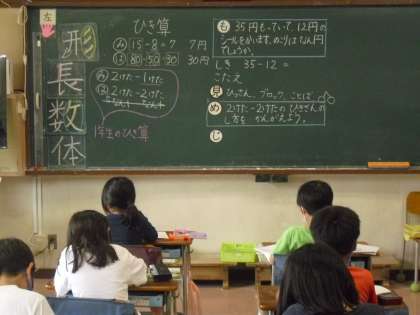 左
形
長
数
体
ひき算
み 15-8=7 7円
は 80-50=30 30円
み 2けた-1けた
は 2けた-2けた
1年生のひき算
も 35円もっていて、12円の
シールをかいます。のこりはなん円
でしょうか。
しき 35-12=
こたえ
見 ひっさん、ブロック、ことば
め 2けた-2けたのひきざんの
し方を かんがえよう。
じ